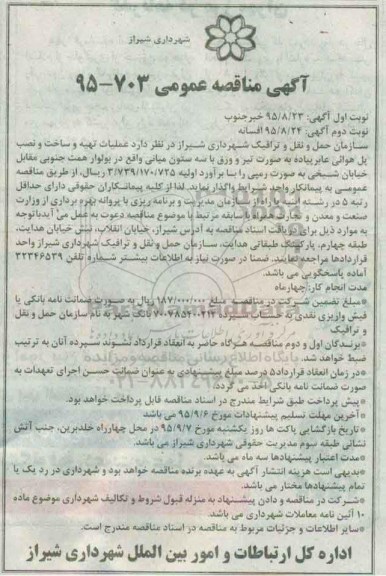 شهرداری شیراز
آگهی مناقصه عمومی ۷۰۳-۹۵
نوبت اول آگهی: ۹۵/۸/۲۳ خبرجنوب
نوبت دوم آگهی: ۹۵/۸/۲۴ افسانه
سـازمان حمل و نقل و ترافیک شـهرداری شیراز در نظر دارد عملیات تهیه و ساخت و نصب
پل هوائی عابرپیاده به صورت تیر و ورق با سه ستون میانی واقع در بولوار همت جنوبی مقابل
خیابان شیخی به صورت زمینی را بـا برآورد اولیه ۳/۷۳۹/۱۷۰/۷۲۵ ریـال، از طریق مناقصه
عمومـی به پیمانکار واجد شـرایط واگذار نماید. لذا از کلیه پیمانکاران حقوقی دارای حداقل
رتبه ۵ در رشـته راه از سازمان مدیریت و برنامه ریزی یا پروانه بهره برداری از وزارت
صنعت و معدن و تجارت همراه با سابقه مرتبط با موضوع مناقصه دعوت به عمل می آیدباتوجه
به موارد ذیل برای دریافت اسناد مناقصه به آدرس شیراز، خیابان انقلاب، نبش خیابان هدایت،
طبقه چهارم، پارکینگ طبقاتی هدایت، سازمان حمل و نقل و ترافیک شهرداری شیراز واحد
قراردادها مراجعه نمایند. ضمنا در صورت نیاز به اطلاعات بیشتر شماره تلفن ۳۲۳۴۶۵۳۹
آماده پاسخگویی می باشد.
مدت انجام کار: چهارماه
*مبلغ تضمین شـرکت در مناقصـه مبلغ ۱۸۷/۰۰۰/۰۰۰ ریال به صـورت ضمانت نامه بانکی یا
فیش واریزی نقدی به حساب سپرده بانک شهر به نام سازمان حمل و نقل
و ترافیک
*برندگان اول و دوم مناقصـه هـرگاه حاضر به انعقاد قرارداد نشـوند سـپرده آنان به ترتیب
ضبط خواهد شد.
*در زمان انعقاد قرارداد۵ درصد مبلغ پیشـنهادی به عنوان ضمانت حسـن اجرای تعهدات به
صورت ضمانت نامه بانکی اخذ می گردد.
*پیش پرداخت طبق شرایط مندرج در اسناد مناقصه قابل پرداخت خواهد بود.
*آخرین مهلت تسلیم پیشنهادات مورخ ۹۵/۹/۶ می باشد
*تاریخ بازگشایی پاکت ها روز یکشنبه مورخ ۹۵/۹/۷ در محل چهارراه خلدبرین، جنب آتش
نشانی طبقه سوم مدیریت حقوقی شهرداری شیراز می باشد.
*مدت اعتبار پیشنهادها سه ماه می باشد.
*بدیهی است هزینه انتشار آگهی به عهده برنده مناقصه خواهد بود و شهرداری در رد یک یا
تمام پیشنهادها مختار می باشد.
*شـرکت در مناقصه و دادن پیشـنهاد به منزله قبول شروط و تکالیف شهرداری موضوع ماده
۱۰ آئین نامه معاملات شهرداری می باشد.
*سایر اطلاعات و جزئیات مربوط به مناقصه در اسناد مناقصه مندرج است.
اداره کل ارتباطات و امور بین الملل شهرداری شیراز